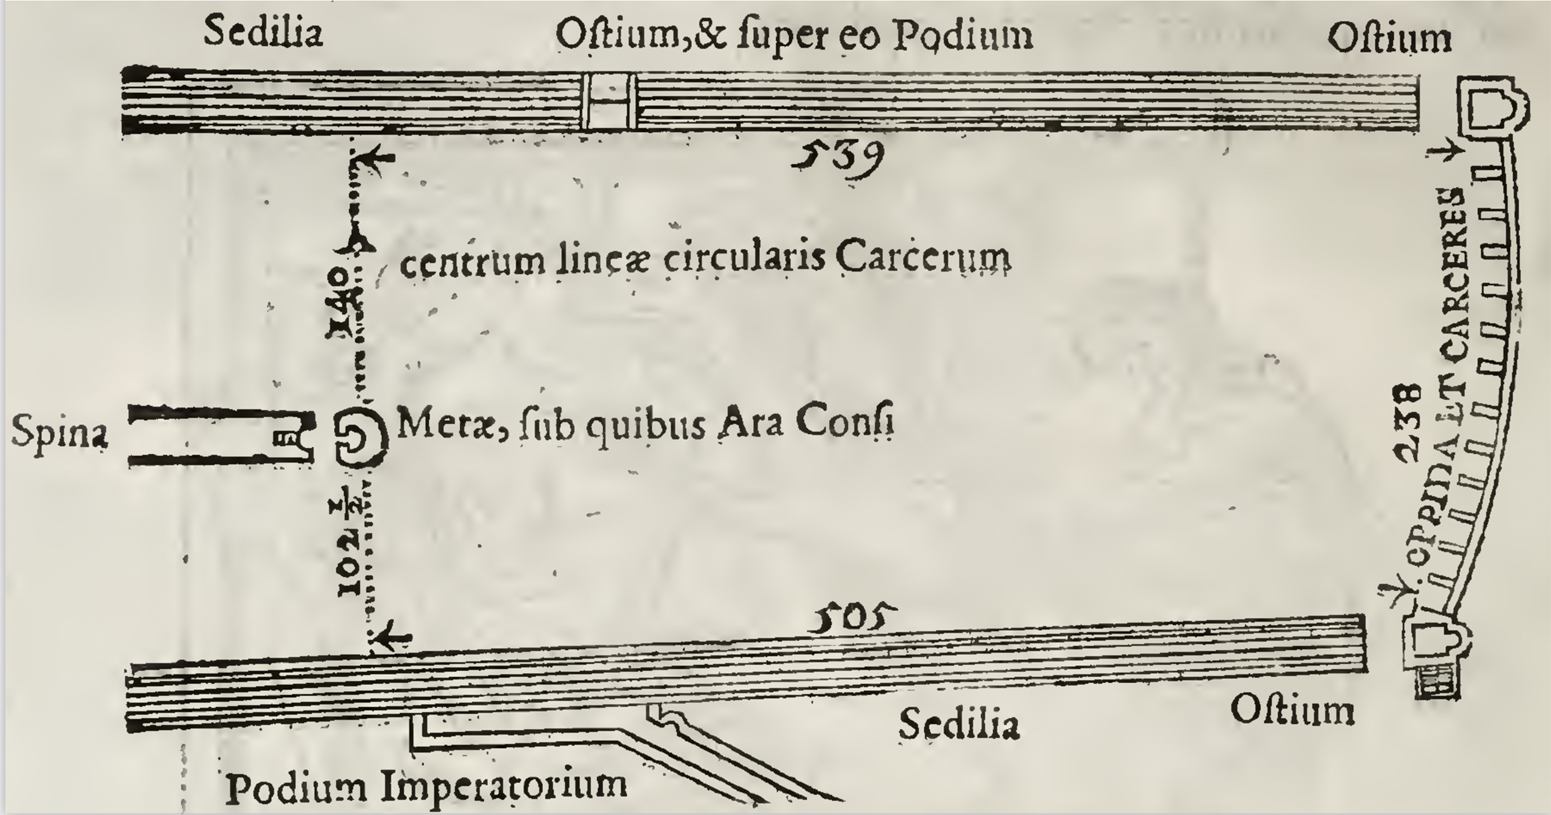 Sedilia
Oſtium,& ſuper eo Podium
Oſtium
539
centrum lineæ circularis Carcerum
140
OPPIDA ET CARCERES
238
Spina
Metæ, ſub quibus Ara Conſi
102 1/2
505
Sedilia
Oſtium
Podium Imperatorium